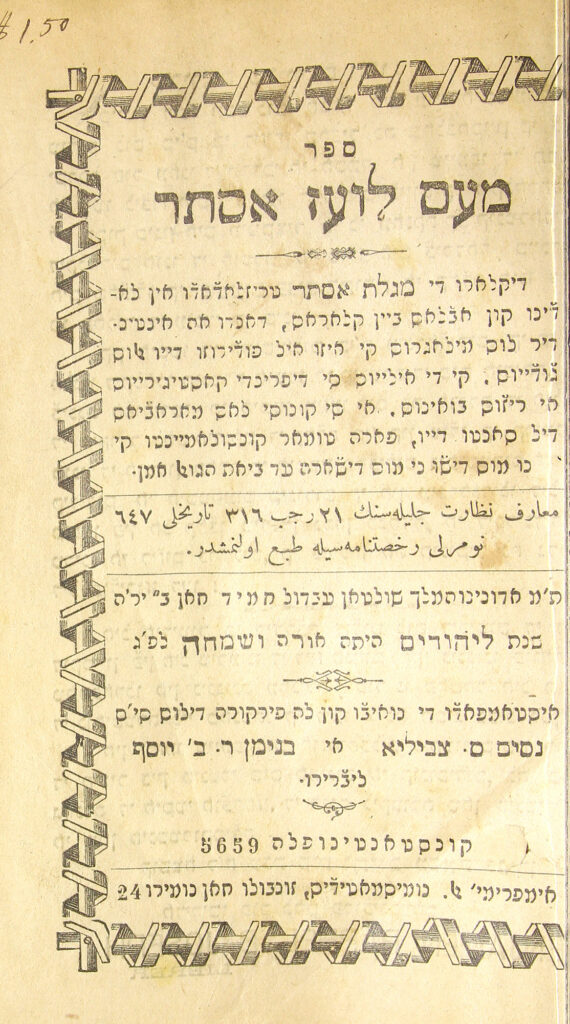 $ 1.50
ספר
מעם לועז אסתר
דיקלארו די מגלת אסתר טריזלאדאדו אין לא־
דינו קון אבלאס ביין קלאראס, דאנדו אה אינטינ־
דיר לוס מילאגרוס קי איזו איל פודירוזו דייו א לוס
ג'ודייוס, קי די אילייוס סי דיפרינדי קאסטיגירייוס
אי ריזוס בואינוס, אי סי קונוסי לאס מאראבייאס
דיל סאנטו דייו, פארה טומאר קונסולאמיינטו קי
נו מוס דישו ני מוס דישארה עד ביאת הגואל אמן.
معارف نظارت جليله‌سنك ٢١ رجب ٣١٦ تاريخلى ٦٤٧
نومرلى رخصتنامه‌سيله طبع اولنمشدر.
ת״מ אדונינו המלך שולטאן עבדול חמיד חאן ב״ יר״ה
שנת ליהודים היתה אורה ושמחה לפ״ג
איסטאמפאדו די נואיבו קון לה פירקורה דילוס סי״ס
נסים ס. צביליא אי בנימן ר. ב׳ יוסף
ליברירו.
קונסטאנטינופלה 5659
אימפרימי׳ א. נומיסמאטידיס, זונבולו חאן נומירו 24